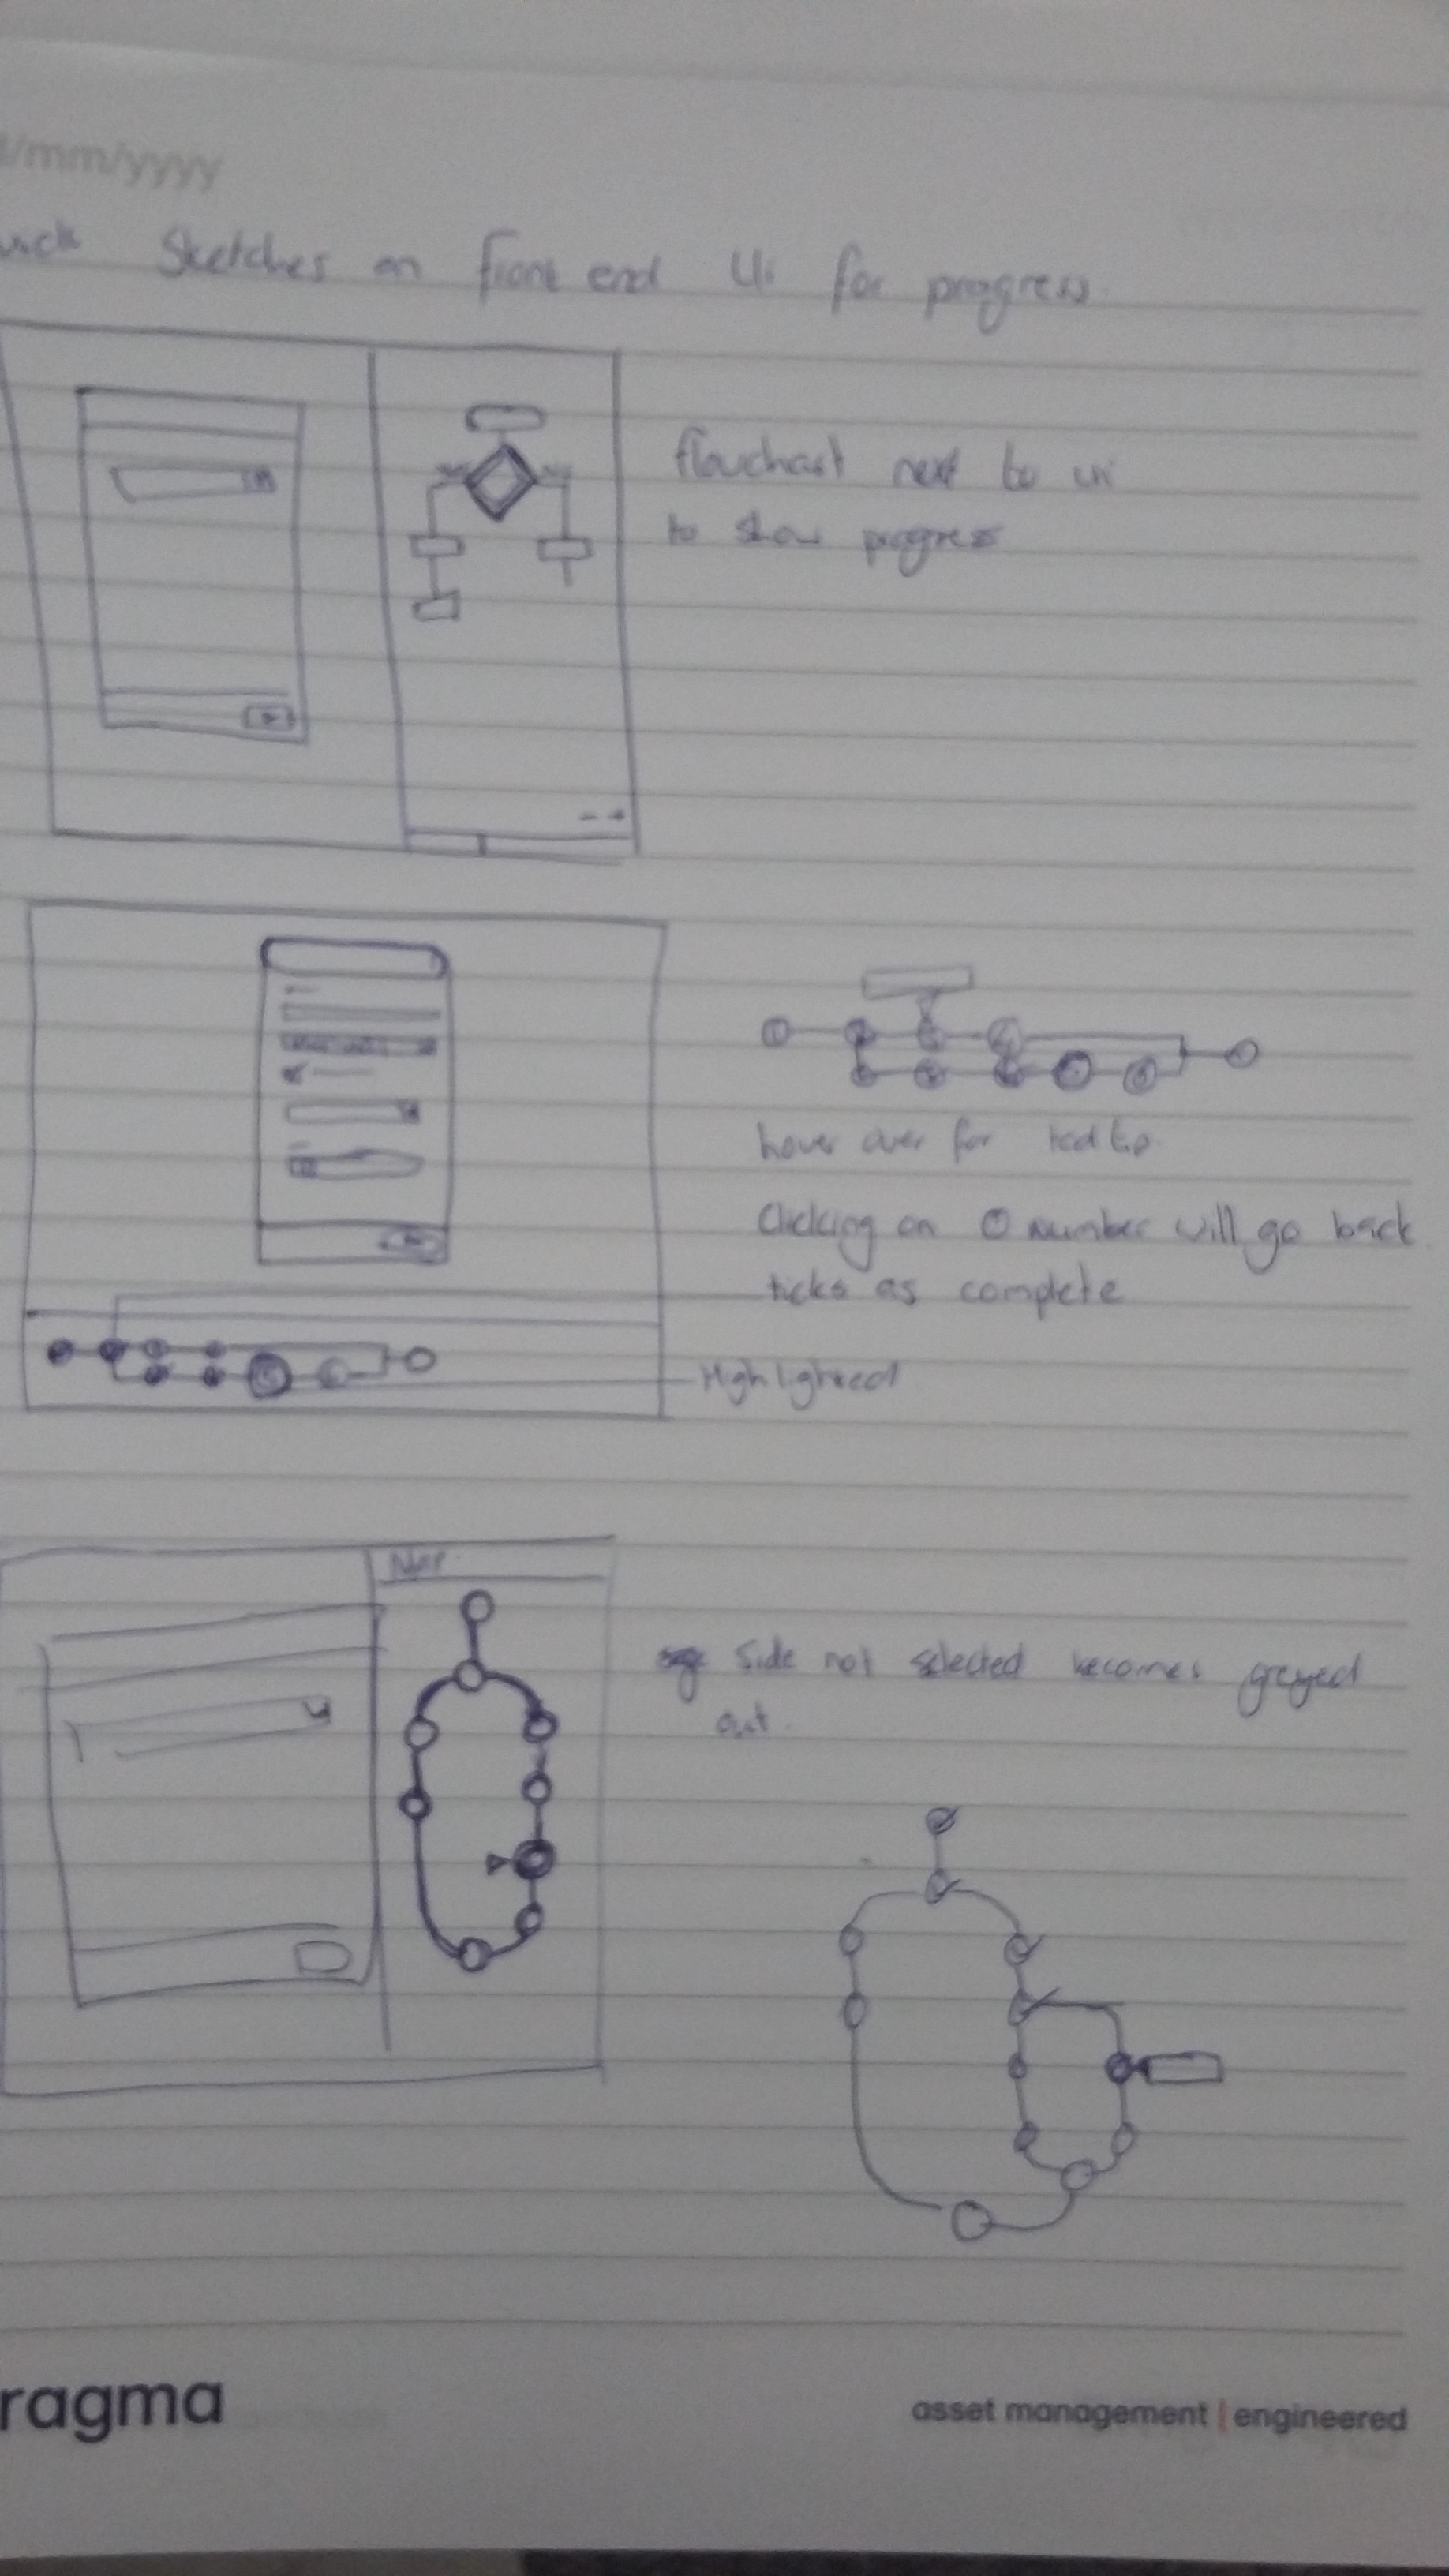 /mm/yyyy
Sketches on front end Ui for progress.
flowchart next to ui
to show progress
hover over for tool tip
Clicking on ① number will go back
ticks as complete
Highlighted
Side not selected becomes greyed
out.
ragma
asset management | engineered